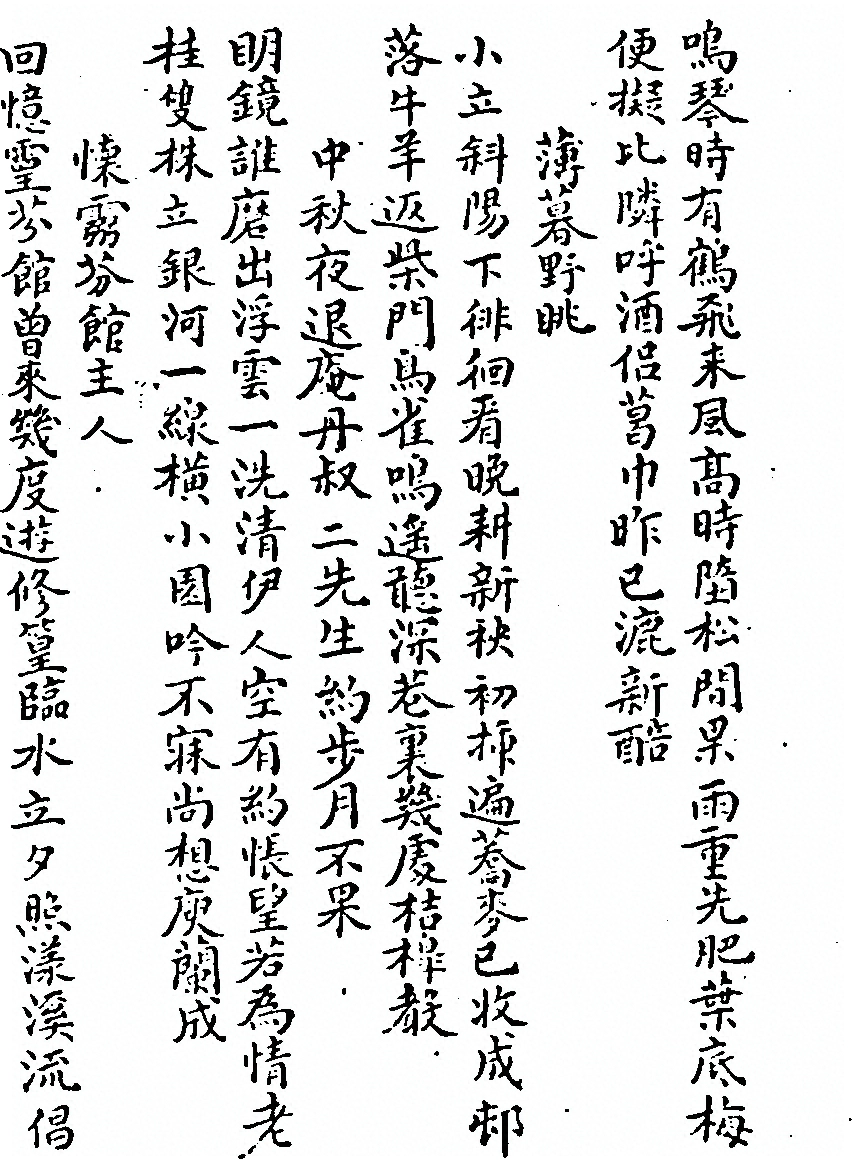 鳴琴時有鶴飛来風髙時墮松間果雨重先肥葉底梅
便擬比隣呼酒侣葛巾昨已漉新醅
薄暮野眺
小立斜陽下徘徊看晚耕新秧初揷遍蕎麥已收成邨
落牛羊返柴門鳥雀鳴遥聽深巷裏幾處桔槔聲
中秋夜退庵丹叔二先生約步月不果
明鏡誰磨出浮雲一洗清伊人空有約悵望若為情老
桂雙株立銀河一線横小園吟不寐尚想庾蘭成
懷靈芬館主人
回憶靈芬館曾來幾度遊修篁臨水立夕照漾溪流倡